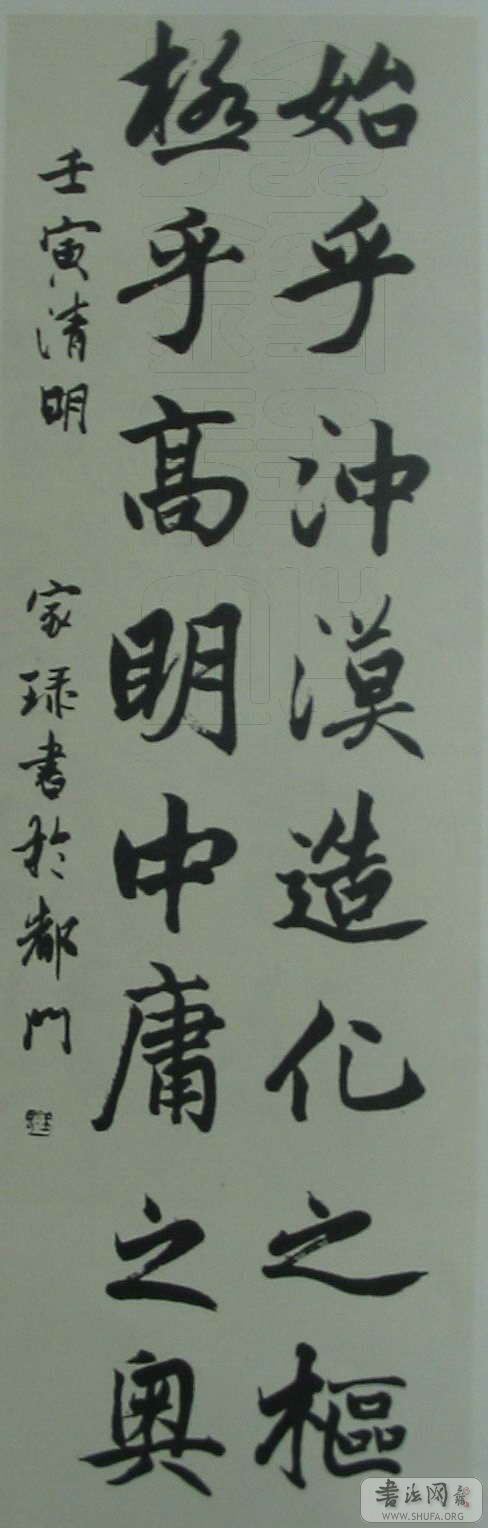 始乎沖漠造化之樞
極乎高明中庸之奧
壬寅清明
家琭書於都門
书法网
WWW.SHUFA.ORG